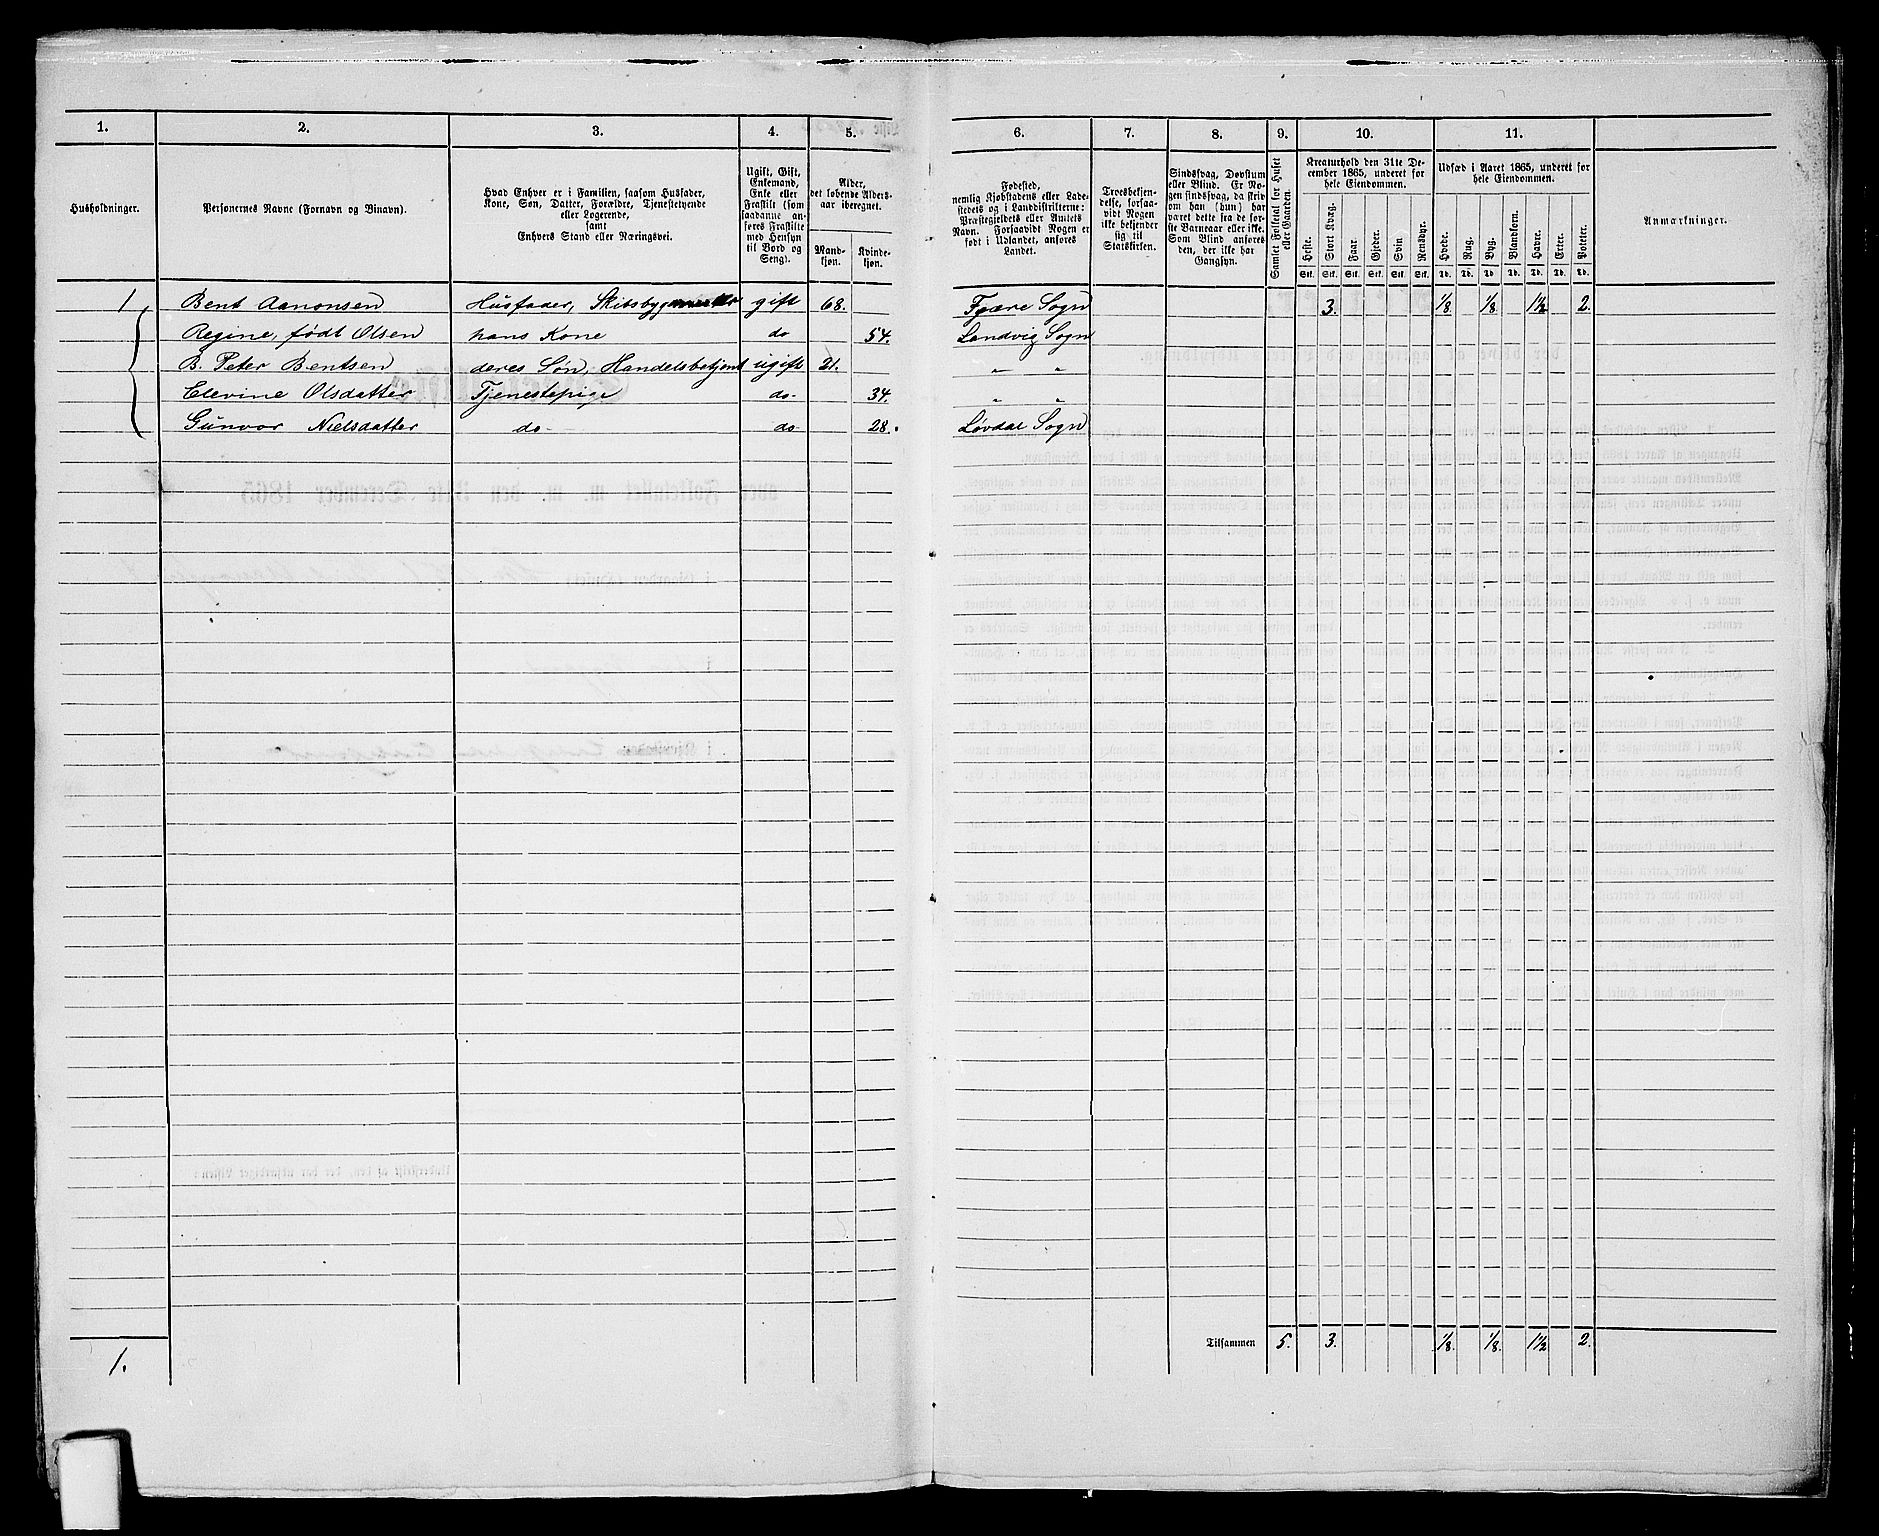 1. 2. 3. 4. 5. 6. 7. 8. 9. 10. 11.
Husholdninger.
Personernes Navne (Fornavn og Binavn).
Hvad Enhver er i Familien, saasom Husfader,
Kone, Søn, Datter, Forældre, Tjenestetyende
eller Logerende,
samt
Enhvers Stand eller Næringsvei.
Ugift, Gift,
Enkemand,
Enke eller
Fraskilt (som
saadanne an-
føres Fraskilte
med Hensyn
til Bord og
Seng).
Alder,
det løbende Alders-
aar iberegnet.
Mand-
kjøn.
Kvinde-
kjøn.
Fødested,
nemlig Kjøbstadens eller Lade-
stedets og i Landdistrikterne:
Præstegjeldets eller Amtets
Navn. Forsaavidt Nogen er
født i Udlandet, anføres
Landet.
Troesbekjen-
delse, forsaa-
vidt Nogen
ikke bekjender
sig til
Statskirken.
Sindssvag, Døvstum
eller Blind. Er No-
gen sindssvag, da skriv
om han (hun) har
været dette fra de før-
ste Barneaar eller ikke.
Som Blind anføres
den, der ikke har
Gangsyn.
Samlet Folketal for Huset
eller Gaarden.
Kreaturhold den 31te De-
cember 1865, underet for
hele Eiendommen.
Heste. Stort Kvæg. Faar. Gjeder. Svin Rensdyr.
Stk. Stk. Stk. Stk. Stk. Stk.
Udsæd i Aaret 1865, underet for
hele Eiendommen.
Hvede. Rug. Byg. Blandkorn. Havre. Erter. Poteter.
Td. Td. Td. Td. Td. Td. Td.
Anmærkninger.
1 Bent Aanonsen Husfader, Skibsbygmester gift 68. Fjære Sogn 3. 1/8 1/8 1 1/2 2.
Regine, født Olsen hans Kone do 54. Landvig Sogn
B. Peter Bentsen deres Søn, Handelsbetjent ugift 21. " "
Elevine Olsdatter Tjenestepige do 34. " "
Gunvor Nielsdatter do do 28. Løvdal Sogn
1. Tilsammen 5. 3. 1/8. 1/8. 1 1/2 2.